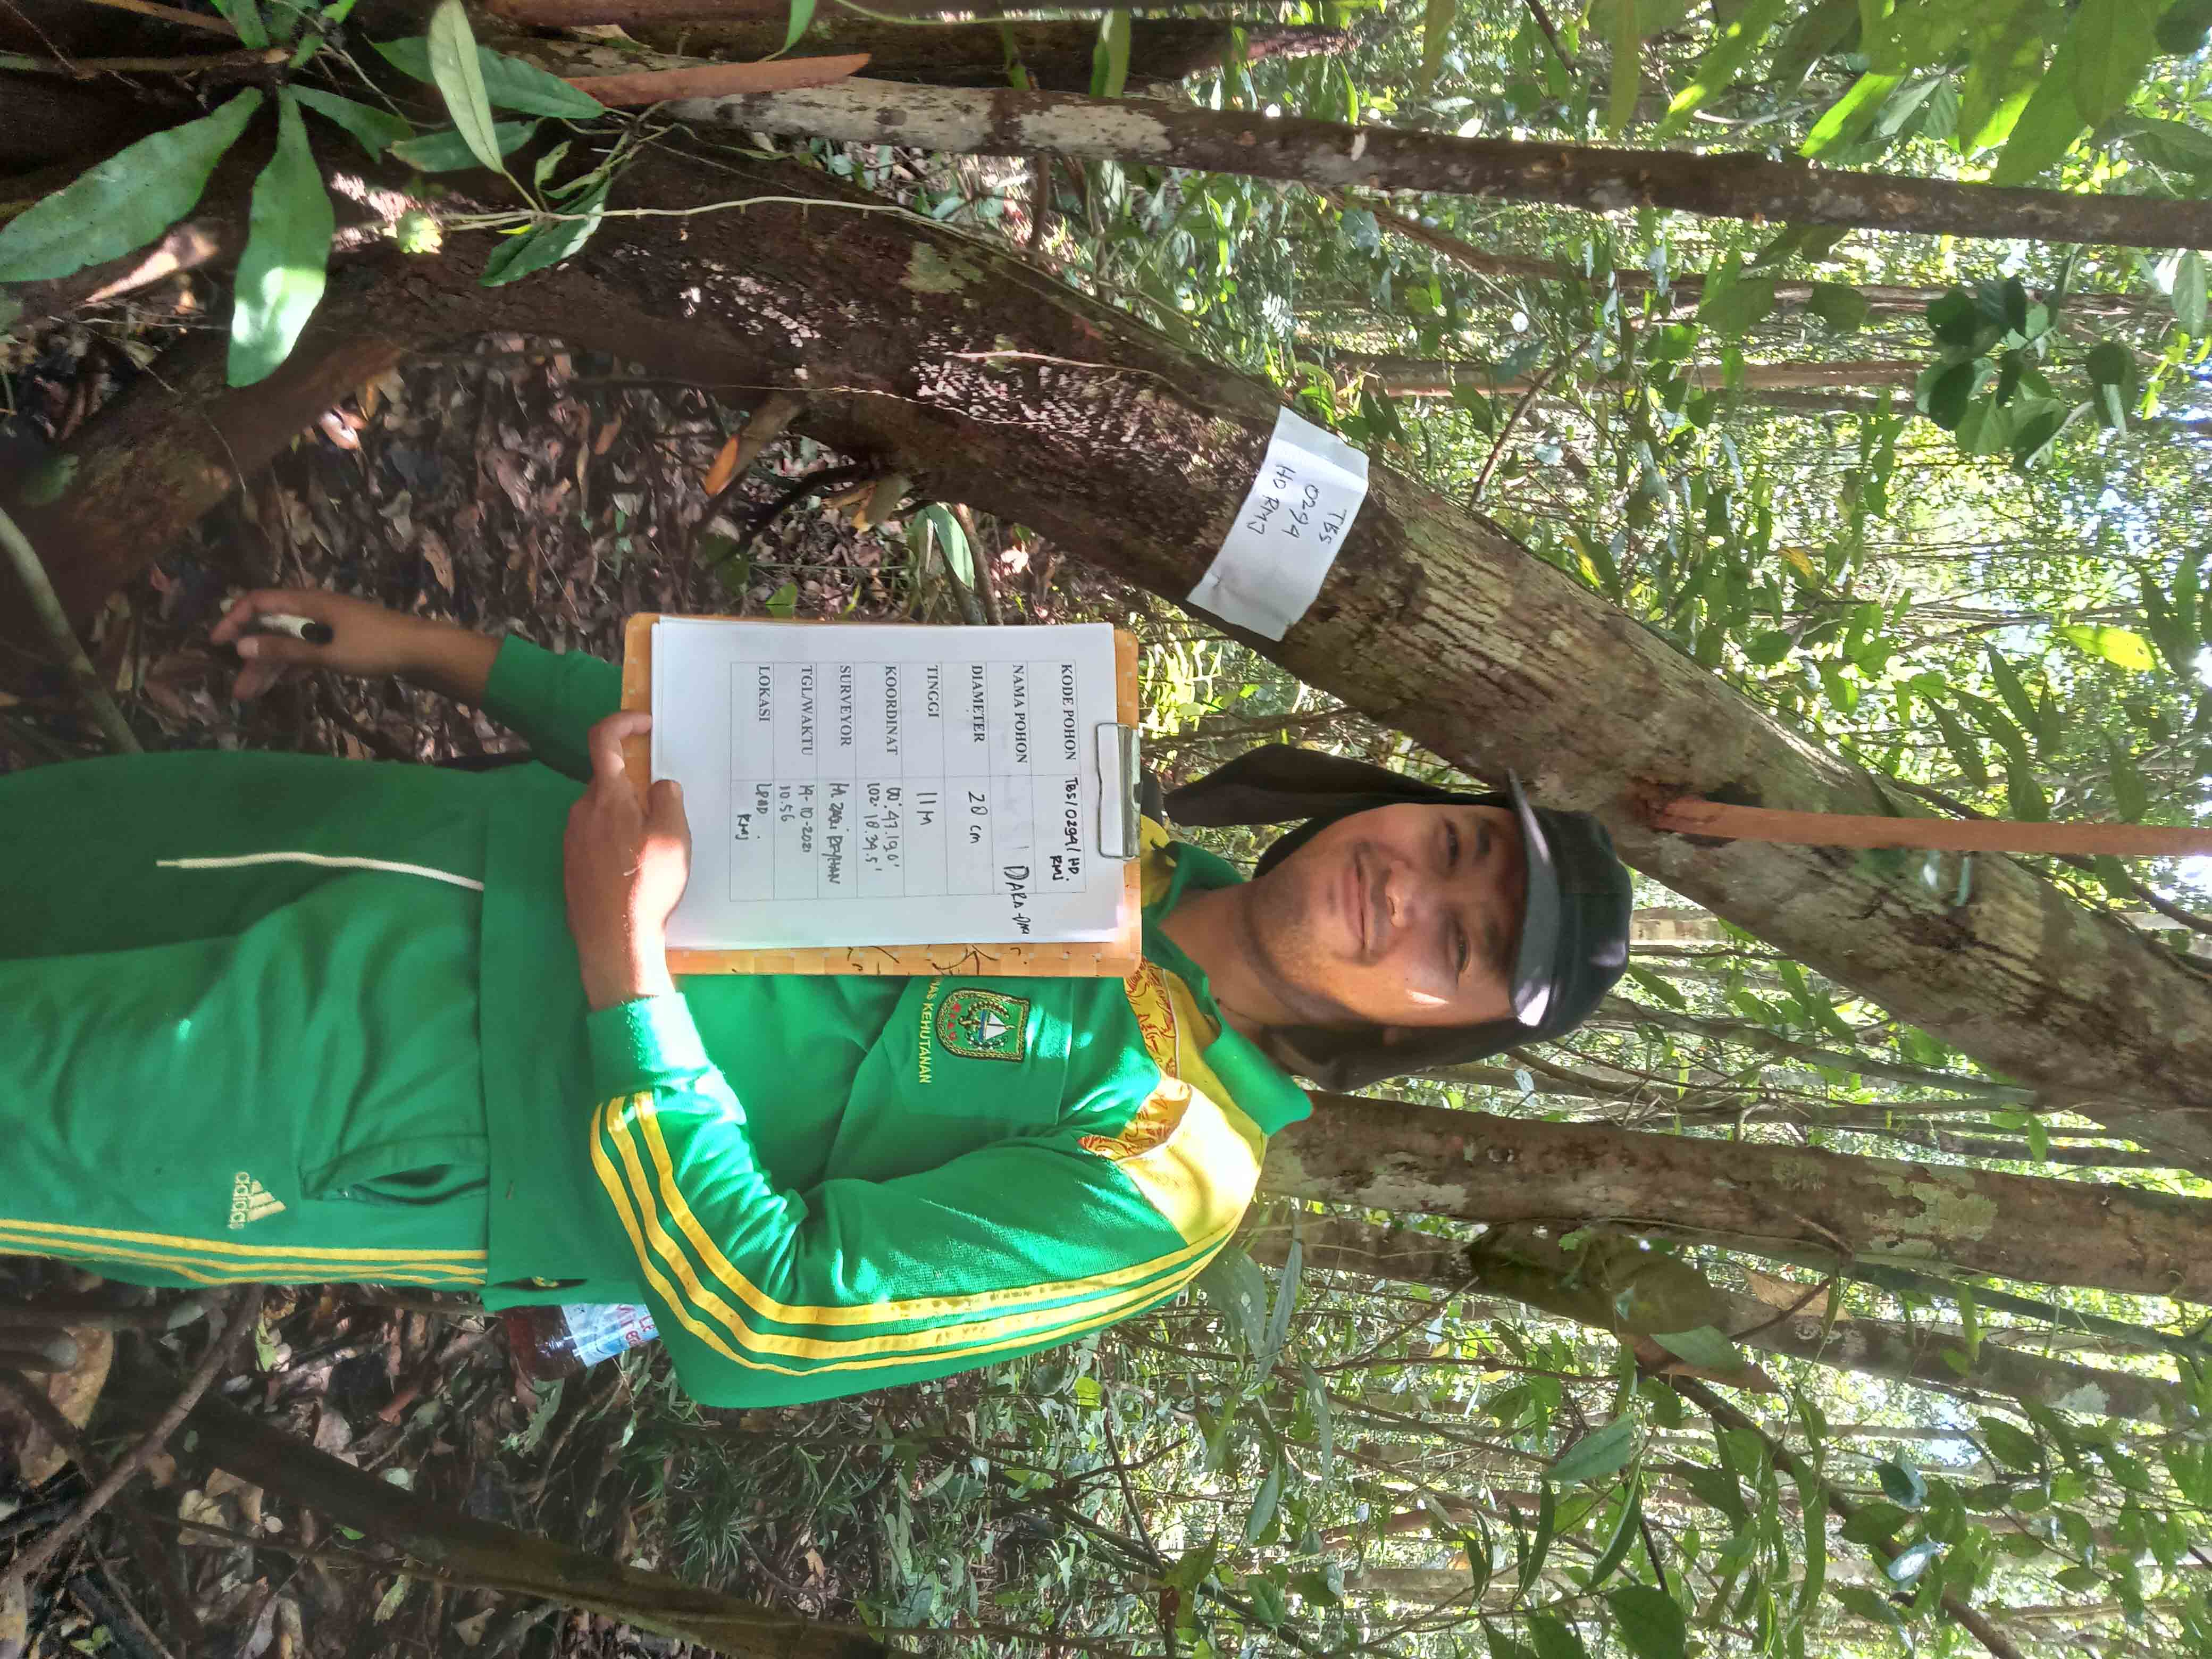 TBS
0294
HD RMJ
KODE POHON TBS/0294/HD.
RMJ
NAMA POHON DARA-DARA
DIAMETER 28 cm
TINGGI 11 M
KOORDINAT 00°.47.196'
102°.18.345'
SURVEYOR M.
TGL/WAKTU 14-10-2021
10.56
LOKASI LPHD.
RMJ
KEHUTANAN
RIAU
adidas